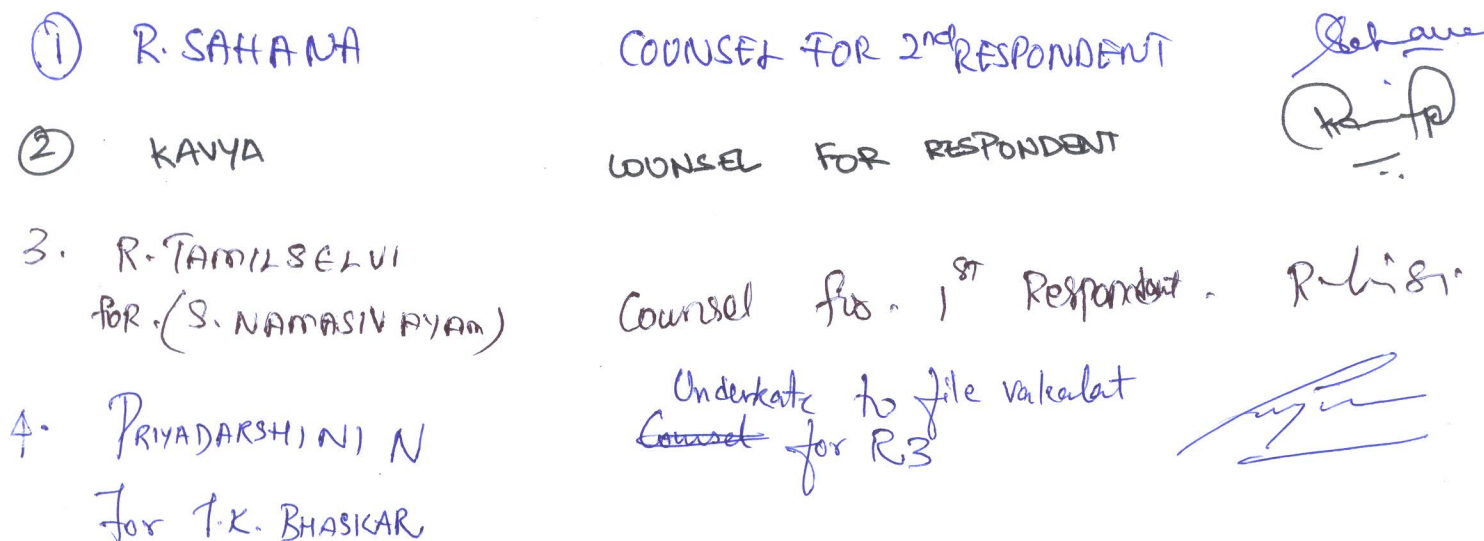 ① R. SAHANA COUNSEL FOR 2nd RESPONDENT Sahana
② KAVYA COUNSEL FOR RESPONDENT
3. R. TAMILSELVI
for. (S. NAMASIVAYAM) Counsel for. 1ST Respondent.
4. PRIYADARSHINI N Undertake to file vakalat
Counsel for R3
For T.K. BHASKAR